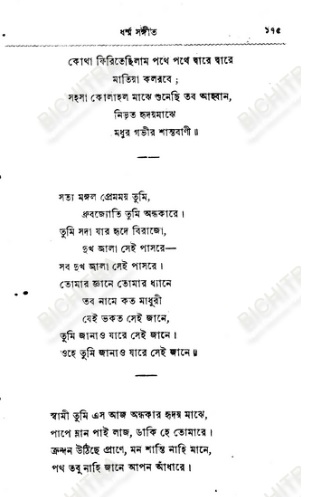 ধর্ম্ম সঙ্গীত ১৭৫
কোথা ফিরিতেছিলাম পথে পথে দ্বারে দ্বারে
মাতিয়া কলরবে ;
সহসা কোলাহল মাঝে শুনেছি তব আহ্বান,
নিভৃত হৃদয়মাঝে
মধুর গভীর শান্তবাণী ॥
সত্য মঙ্গল প্রেমময় তুমি,
ধ্রুবজ্যোতি তুমি অন্ধকারে ।
তুমি সদা যার হৃদে বিরাজো,
দুখ জ্বালা সেই পাসরে—
সব দুখ জ্বালা সেই পাসরে ।
তোমার জ্ঞানে তোমার ধ্যানে
তব নামে কত মাধুরী
যেই ভকত সেই জানে,
তুমি জানাও যারে সেই জানে ।
ওহে তুমি জানাও যারে সেই জানে ॥
স্বামী তুমি এস আজ অন্ধকার হৃদয় মাঝে,
পাপে ম্লান পাই লাজ, ডাকি হে তোমারে ।
ক্রন্দন উঠিছে প্রাণে, মন শান্তি নাহি মানে,
পথ তবু নাহি জানে আপন আঁধারে ।
BICHITRA